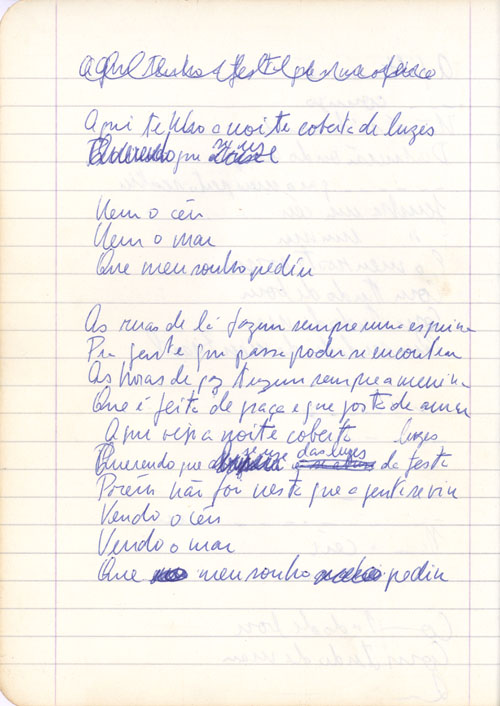 Aqui tenho a noite coberta de luzes
Querendo que
Nem o céu
Nem o mar
Que meu sonho pediu
As ruas de lá fazem sempre uma esquina
Pra gente que passa poder se encontrar
As horas de paz trazem sempre a menina
Que é feita de graça e que gosta de amar
Aqui vejo a noite coberta luzes
Querendo que das luzes da festa
Porém não foi nesta que a gente se viu
Vendo o céu
Vendo o mar
Que meu sonho pediu